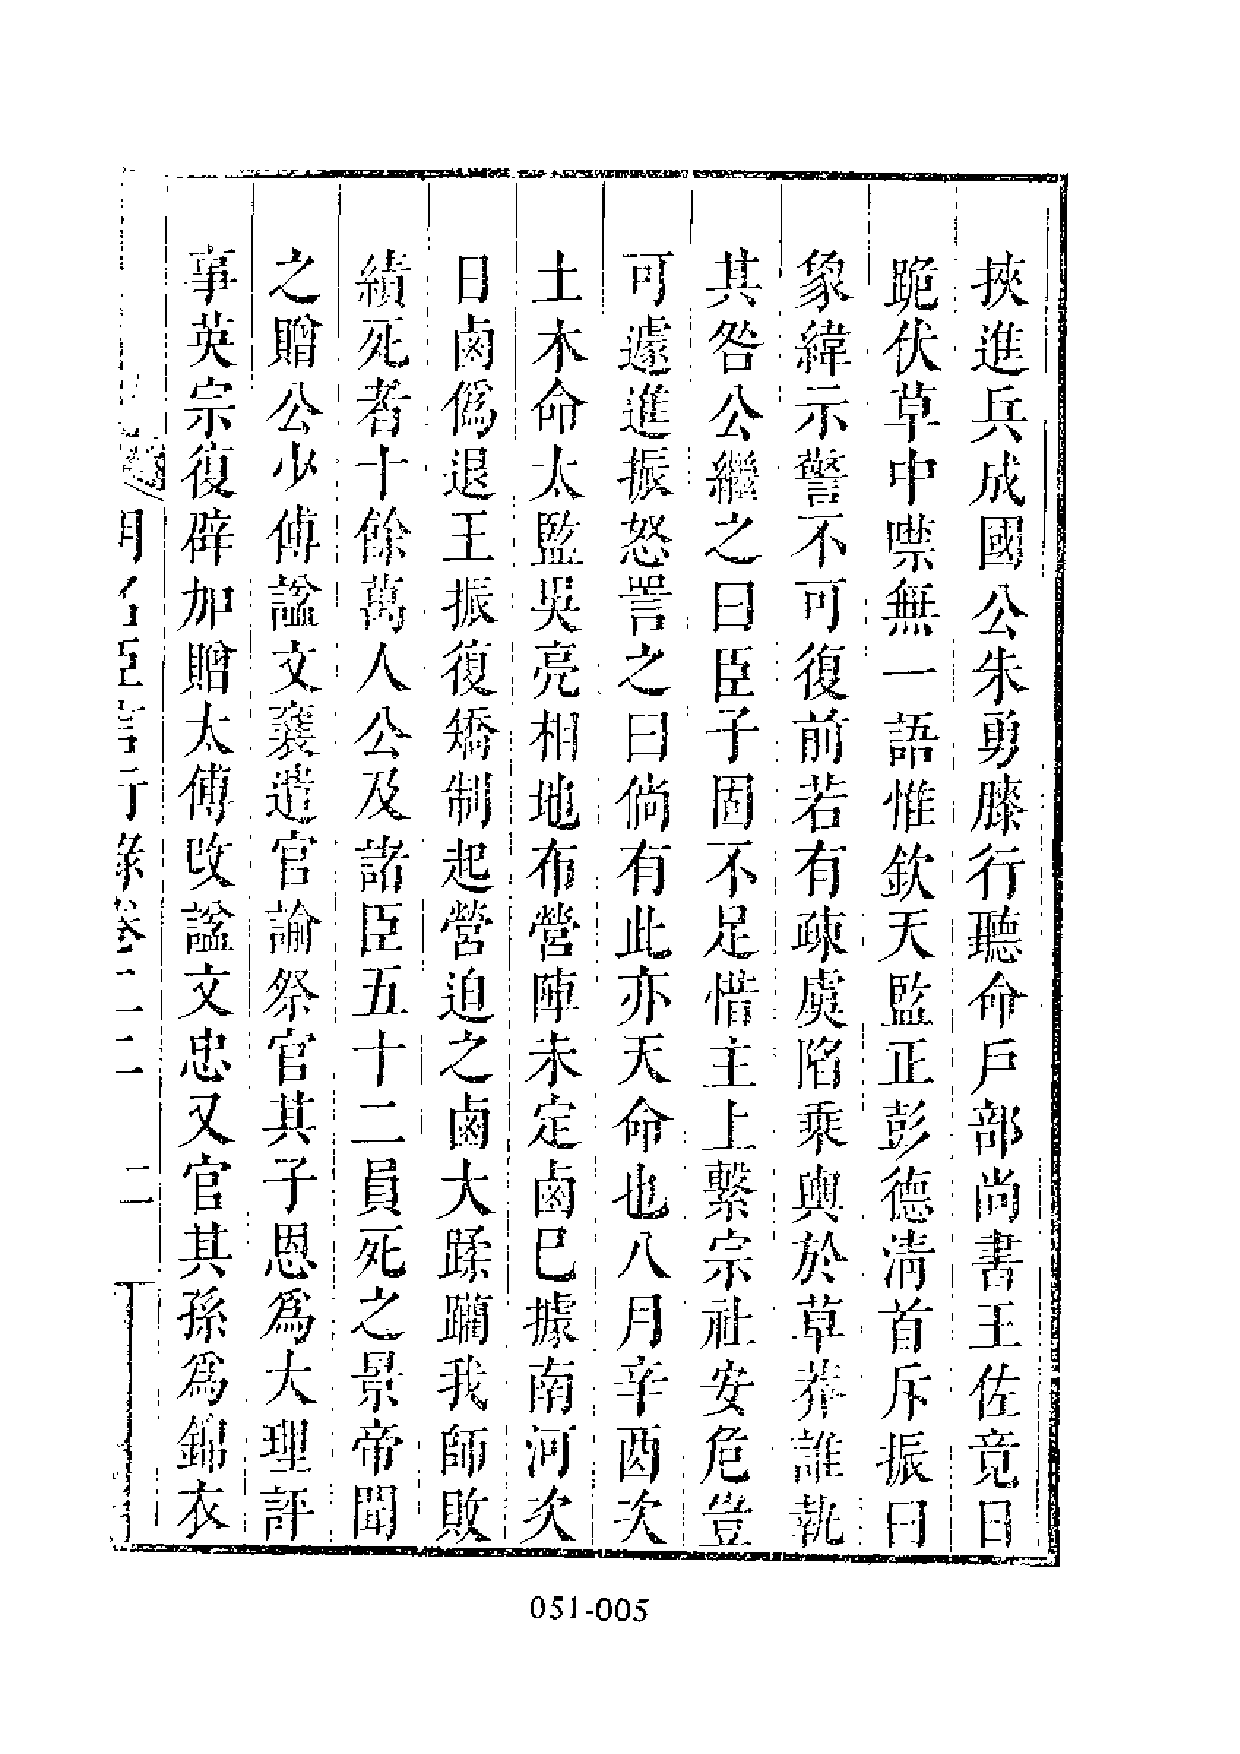 挾進兵成國公朱勇膝行聽命戶部尚書王佐竟日
跪伏草中噤無一語惟欽天監正彭德淸首斥振曰
象緯示警不可復前若有疎虞陷乘輿於草莽誰執
其咎公繼之曰臣子固不足惜主上繫宗社安危豈
可遽進振怒詈之曰倘有此亦天命也八月辛酉次
土木命太監吳亮相地布營陣未定鹵已據南河次
日鹵僞退王振復矯制起營迫之鹵大蹂躪我師敗
績死者十餘萬人公及諸臣五十二員死之景帝聞
之贈公少傅諡文襄遣官諭祭官其子恩爲大理評
事英宗復辟加贈太傅改諡文忠又官其孫爲錦衣
明名臣言行錄卷二二 二
051-005